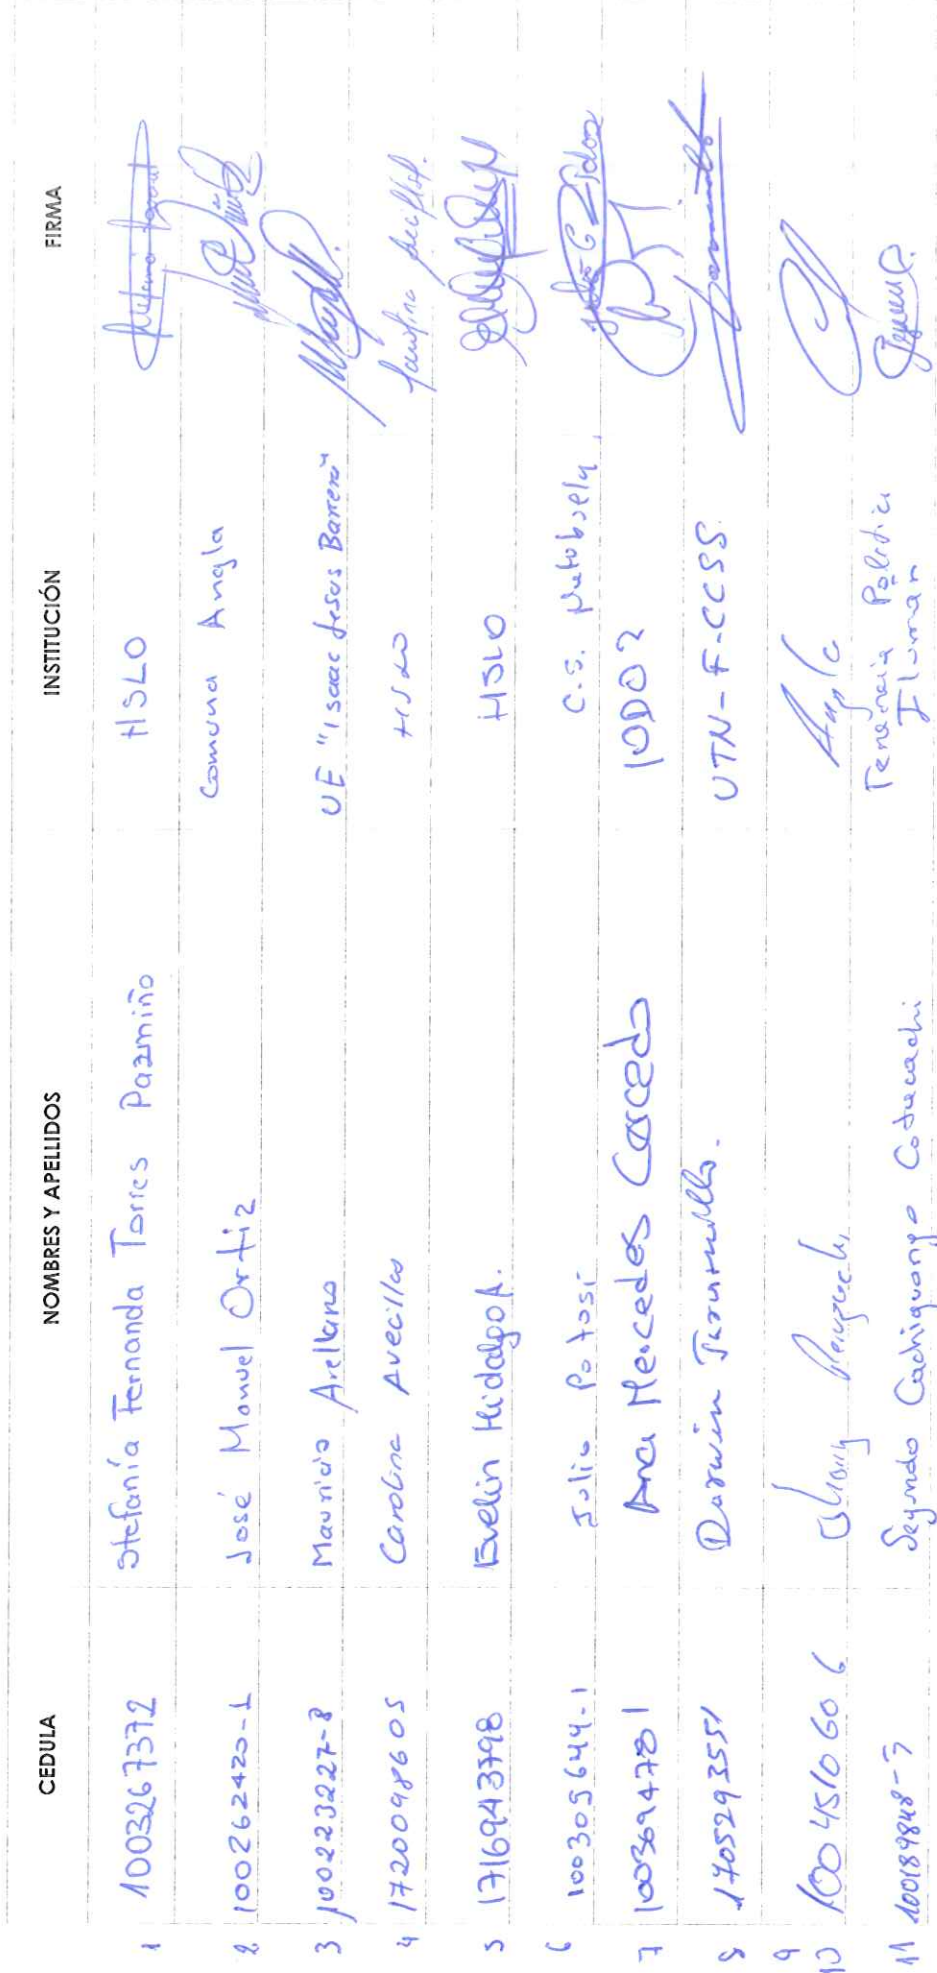 CEDULA NOMBRES Y APELLIDOS INSTITUCIÓN FIRMA
1 1003267372 Stefanía Fernanda Torres Pazmiño HSLO
2 100262420-1 José Manuel Ortiz Comuna Angla
3 100223227-8 Mauricio Arellano UE "Isaac Jesus Barrera"
4 1720098605 Carolina Avecillas HSLO
5 1716943798 Evelin Hidalgo A. HSLO
6 100305644-1 Julio Potosí C.S.
7 1003694781 Ana Mercedes Carcedo 10D02
8 1705293551 Darwin Jaramillo. UTN-F-CCSS.
9
10 1004510606
11 100189848-7 Segundo Cachiguango Cotacachi Tenencia Política
Ilumán